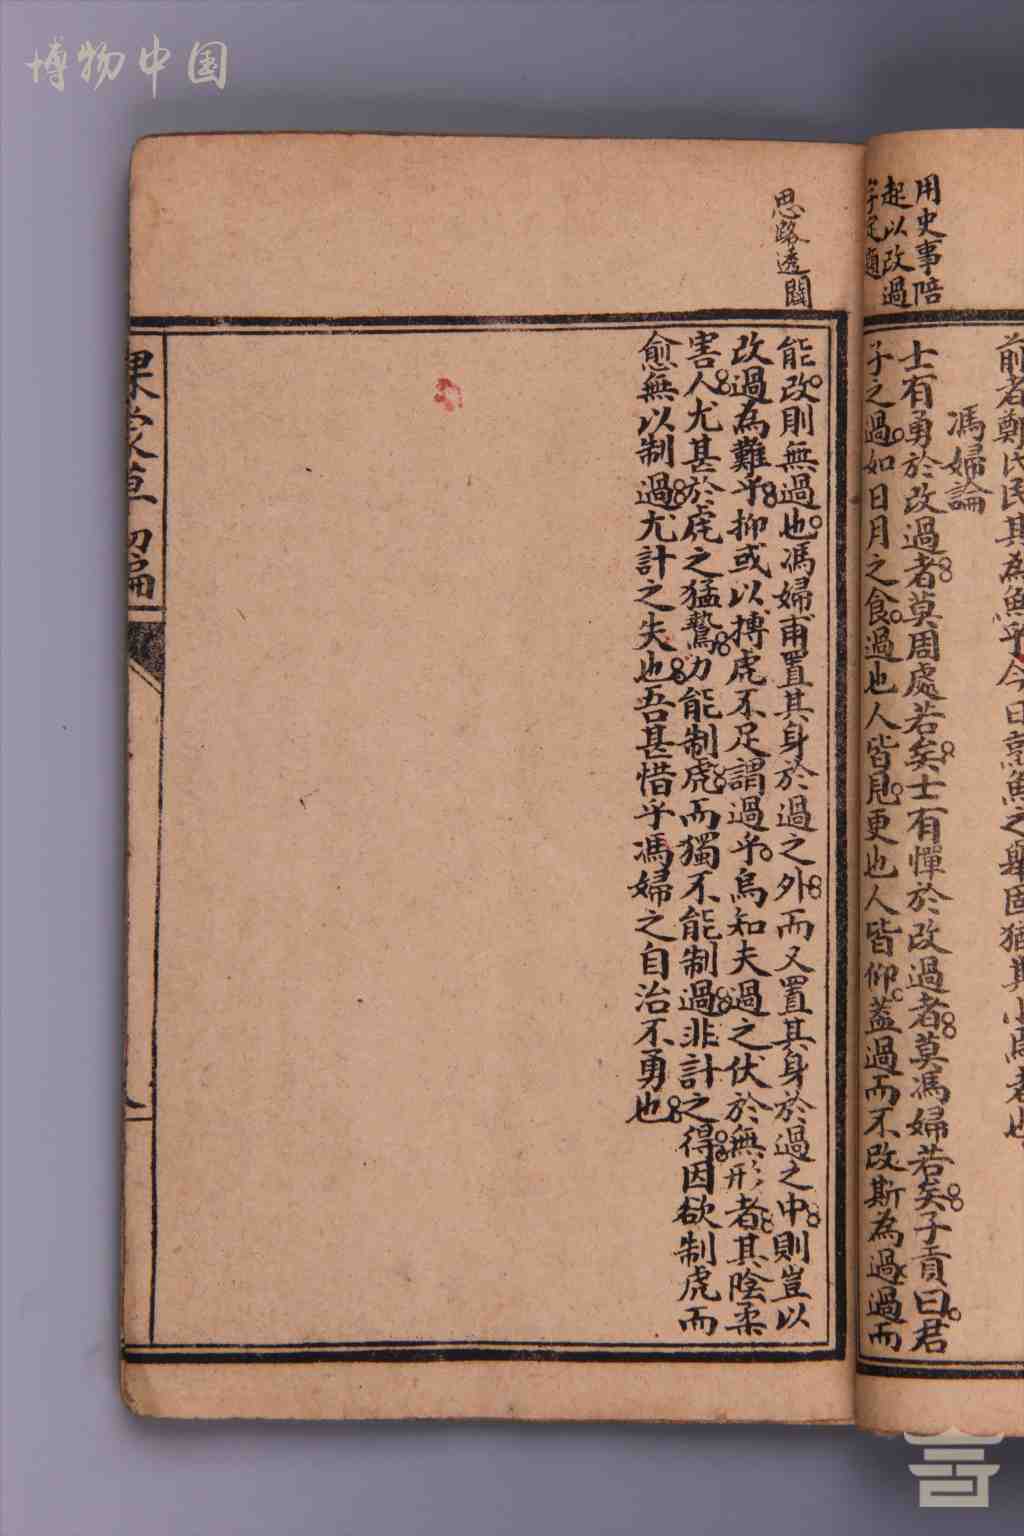 博物中国
用史事陪
起以改過
字定題
前者鄭氏民其為魚乎今日烹魚之舉固猶其小焉者也
馮婦論
士有勇於改過者莫周處若矣士有憚於改過者莫馮婦若矣子貢曰君
子之過如日月之食過也人皆見更也人皆仰蓋過而不改斯為過過而
思路透闢
能改則無過也馮婦甫置其身於過之外而又置其身於過之中則豈以
改過為難乎抑或以搏虎不足謂過乎烏知夫過之伏於無形者其陰柔
害人尤甚於虎之猛鷙力能制虎而獨不能制過非計之得因欲制虎而
愈無以制過尤計之失也吾甚惜乎馮婦之自治不勇也
課蒙草 初編